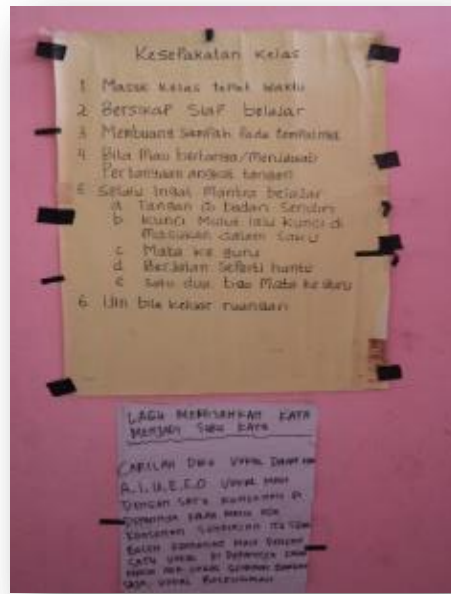 Kesepakatan Kelas
1 Masuk kelas tepat waktu
2 Bersikap siap belajar
3 Membuang sampah pada tempatnya
4 Bila mau bertanya/menjawab
Pertanyaan angkat tangan
5 Selalu ingat mantra belajar
a Tangan di badan sendiri
b Kunci mulut lalu kunci di
masukan dalam saku
c Mata ke guru
d Berjalan seperti hantu
e satu dua tiga mata ke guru
6 Izin bila keluar ruangan
LAGU MEMISAHKAN KATA
MENJADI SUKU KATA
CARILAH DULU VOKAL DALAM
A.I.U.E.O VOKAL
DENGAN SATU KONSONAN DI
DEPANNYA
KONSONAN
SATU VOKAL DI DEPANNYA
VOKAL
VOKAL